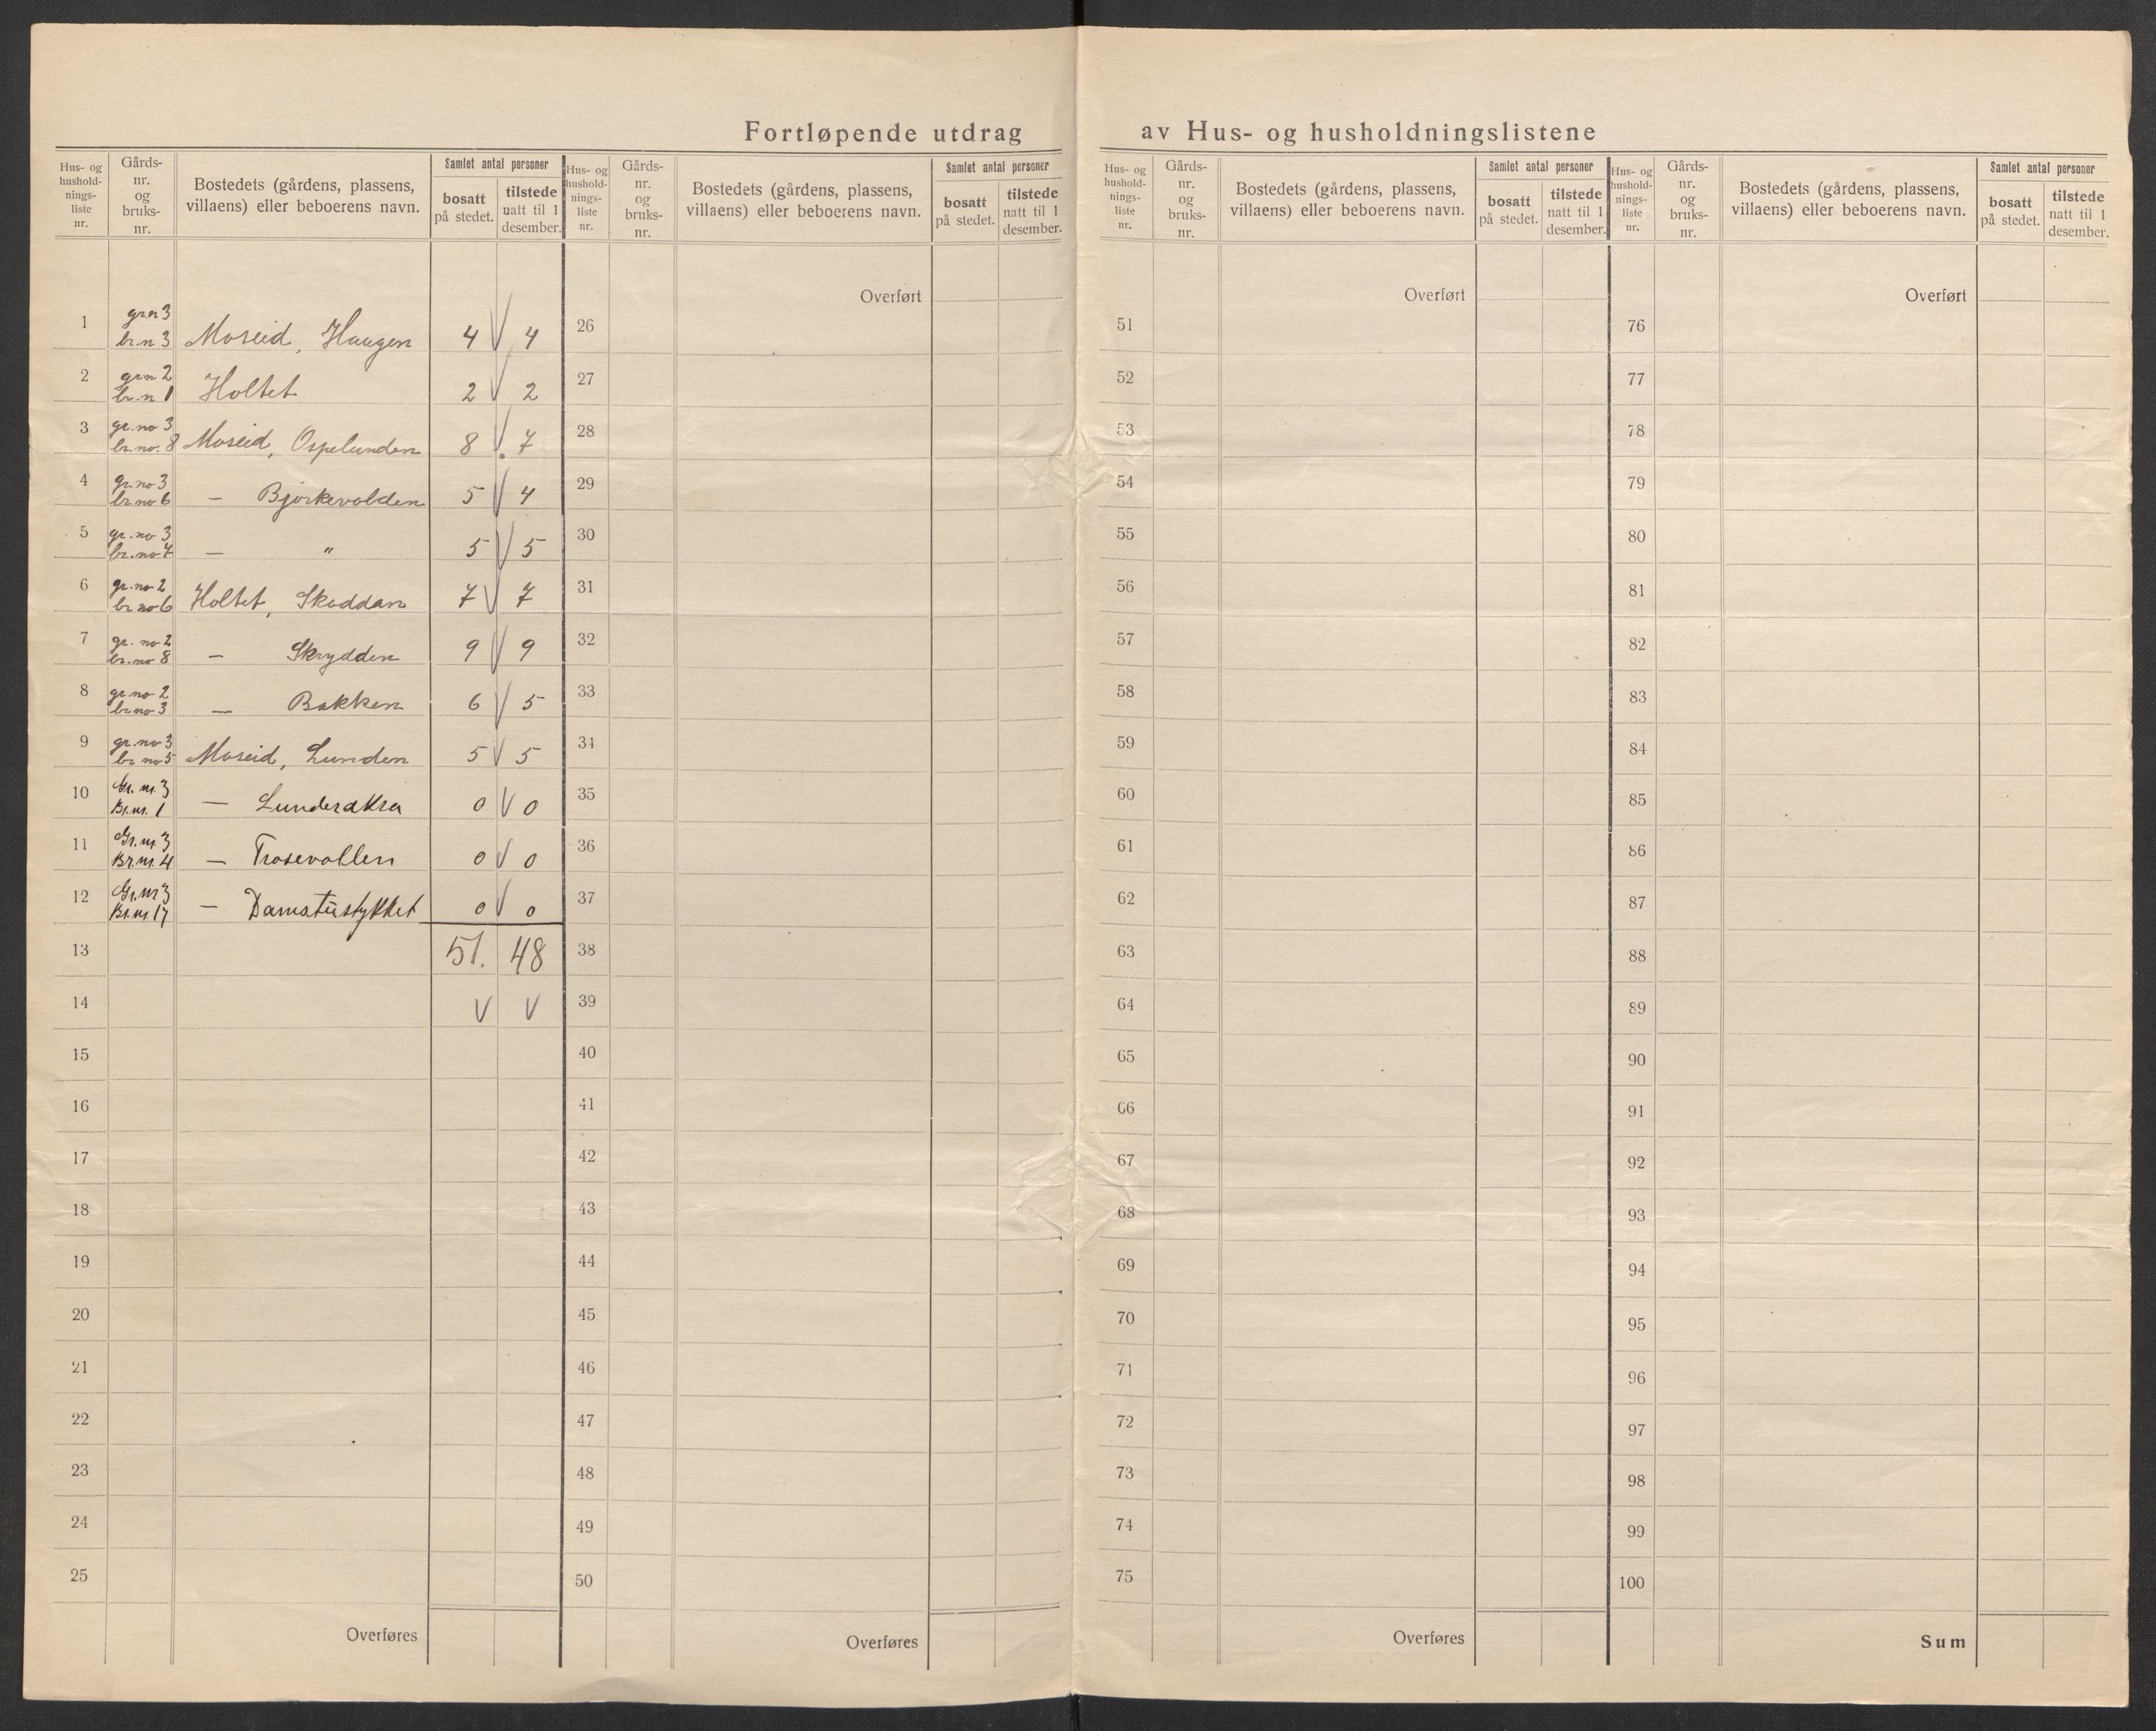 Fortløpende utdrag av Hus- og husholdningslistene
Hus- og hushold-nings-liste nr. Gårds-nr. og bruks-nr. Bostedets (gårdens, plassens, villaens) eller beboerens navn. Samlet antal personer bosatt på stedet. tilstede natt til 1 desember.
Hus- og hushold-nings-liste nr. Gårds-nr. og bruks-nr. Bostedets (gårdens, plassens, villaens) eller beboerens navn. Samlet antal personer bosatt på stedet. tilstede natt til 1 desember.
Hus- og hushold-nings-liste nr. Gårds-nr. og bruks-nr. Bostedets (gårdens, plassens, villaens) eller beboerens navn. Samlet antal personer bosatt på stedet. tilstede natt til 1 desember.
Hus- og hushold-nings-liste nr. Gårds-nr. og bruks-nr. Bostedets (gårdens, plassens, villaens) eller beboerens navn. Samlet antal personer bosatt på stedet. tilstede natt til 1 desember.
1 gr.n 3 br.n 3 Moseid, Haugen 4 V 4
2 gr.n 2 br.n 1 Holtet 2 V 2
3 gr.no 3 br.no. 8 Moseid, Ospelunden 8 V 7
4 gr.no 3 br.no 6 — Bjørkevolden 5 V 4
5 gr.no 3 br.no 7 — " 5 V 5
6 gr.no 2 br.no 6 Holtet, Skoddan 7 V 7
7 gr.no 2 br.no 8 — Skrydden 9 V 9
8 gr.no 2 br.no 3 — Bakken 6 V 5
9 gr.no 3 br.no 5 Moseid, Lunden 5 V 5
10 Gr.nr. 3 Br.nr. 1 — Lunderakra 0 V 0
11 Gr.nr 3 Br.nr. 4 — Trosevollen 0 V 0
12 Gr.nr 3 Br.nr 17 — Damstustykket 0 V 0
13 51. 48
14 V V
15
16
17
18
19
20
21
22
23
24
25
Overføres
Overført
26
27
28
29
30
31
32
33
34
35
36
37
38
39
40
41
42
43
44
45
46
47
48
49
50
Overføres
Overført
51
52
53
54
55
56
57
58
59
60
61
62
63
64
65
66
67
68
69
70
71
72
73
74
75
Overføres
Overført
76
77
78
79
80
81
82
83
84
85
86
87
88
89
90
91
92
93
94
95
96
97
98
99
100
Sum